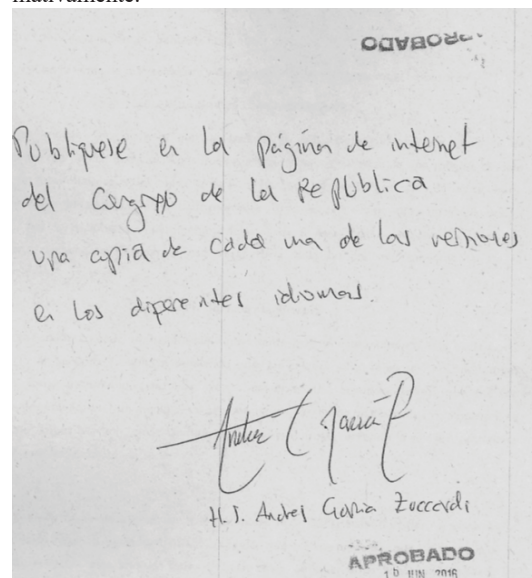 APROBADO
Publiquese en la página de internet
del Congreso de la Republica
una copia de cada una de las versiones
en los diferentes idiomas.
H.S. Andres Garcia Zuccardi
APROBADO
JUN 2016